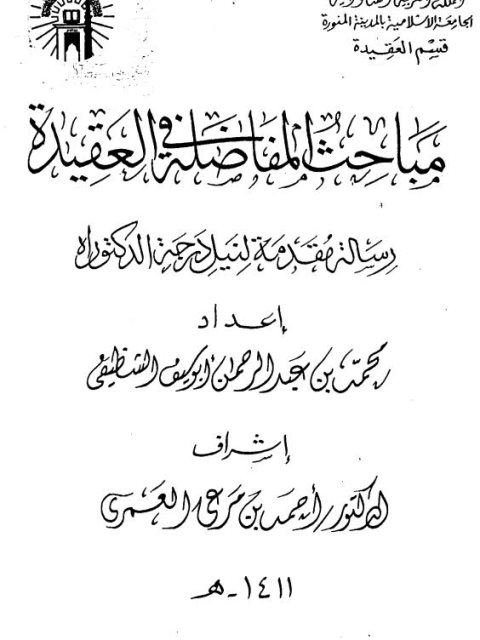 المملكة العربية السعودية
الجامعة الاسلامية بالمدينة المنورة
قسم العقيدة
مباحث المفاضلة في العقيدة
رسالة مقدمة لنيل درجة الدكتوراه
إعداد
محمد بن عبد الرحمن أبو سيف الشظيفي
إشراف
الدكتور/أحمد بن مرعي العمري
١٤١١-ه